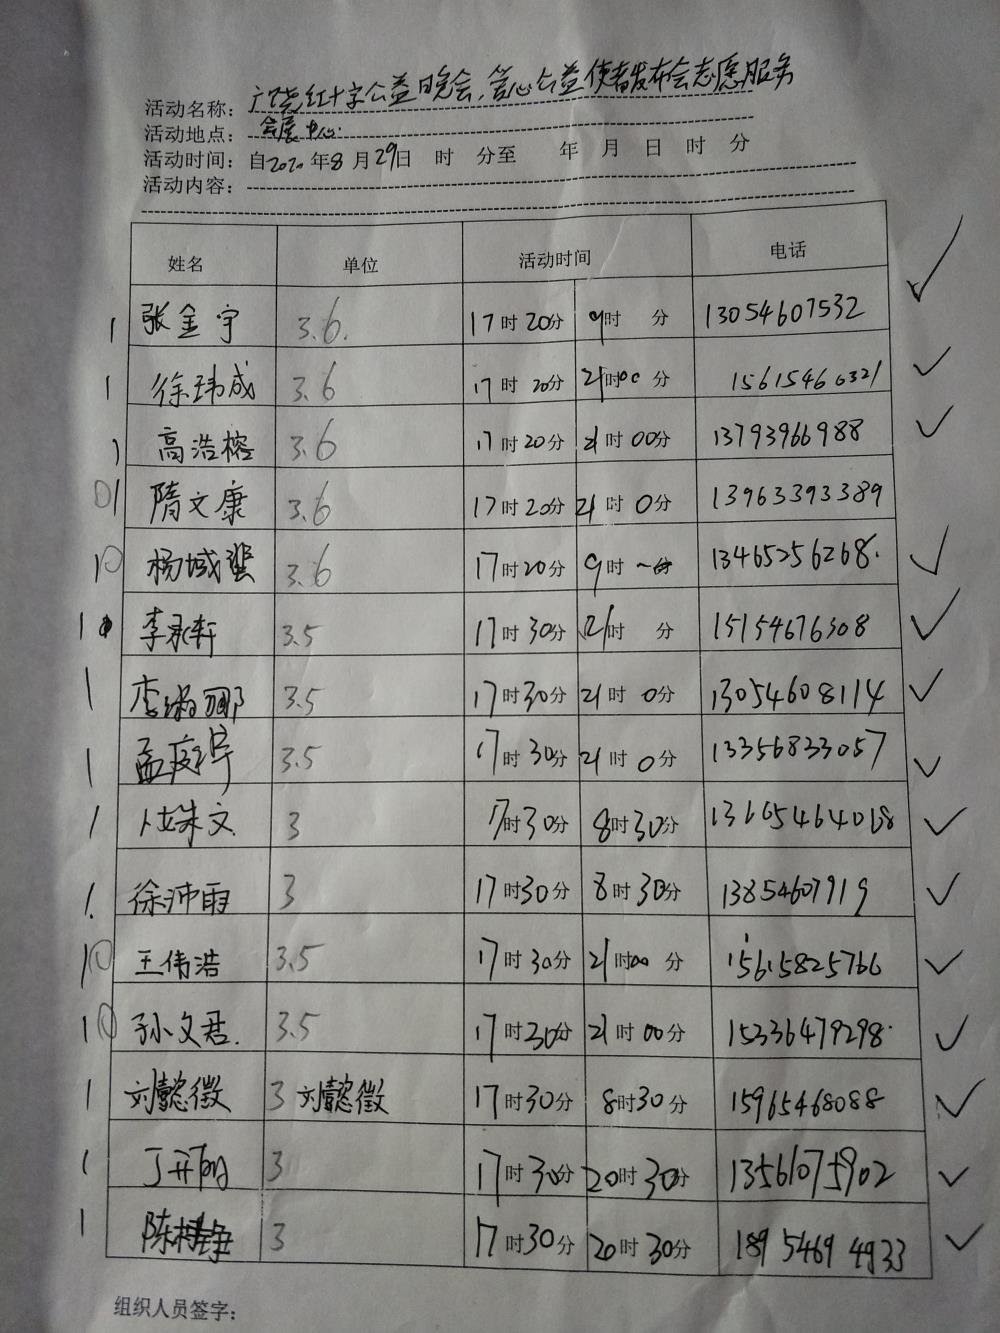 活动名称：广饶红十字公益晚会、善心公益使者发布会志愿服务
活动地点：会展中心.
活动时间：自2020年8月29日 时 分至 年 月 日 时 分
活动内容：
姓名 单位 活动时间 电话
1 张金宇 3.6. 17时20分 9时 分 13054607532
1 徐玮成 3.6 17时20分 21时00分 15615460321
1 高浩榕 3.6 17时20分 21时00分 13793966988
01 隋文康 3.6 17时20分 21时0分 13963393389
10 杨城 3.6 17时20分 9时 分 13465256268.
1 李承轩 3.5 17时30分 21时 分 15154676308
1 李 娜 3.5 17时30分 21时0分 13054608114
1 孟庭宇 3.5 17时30分 21时0分 13356833057
1 姝文 3 17时30分 8时30分
1. 徐沛雨 3 17时30分 8时30分 13854607919
10 王伟浩 3.5 17时30分 21时00分 15615825766
10 孙文君. 3.5 17时30分 21时00分 15336479298.
1 刘懿徵 3 刘懿徵 17时30分 8时30分 15965468088
1 丁开朗 3 17时30分 20时30分 13561075902
1 陈 3 17时30分 20时30分 18954694933
组织人员签字：